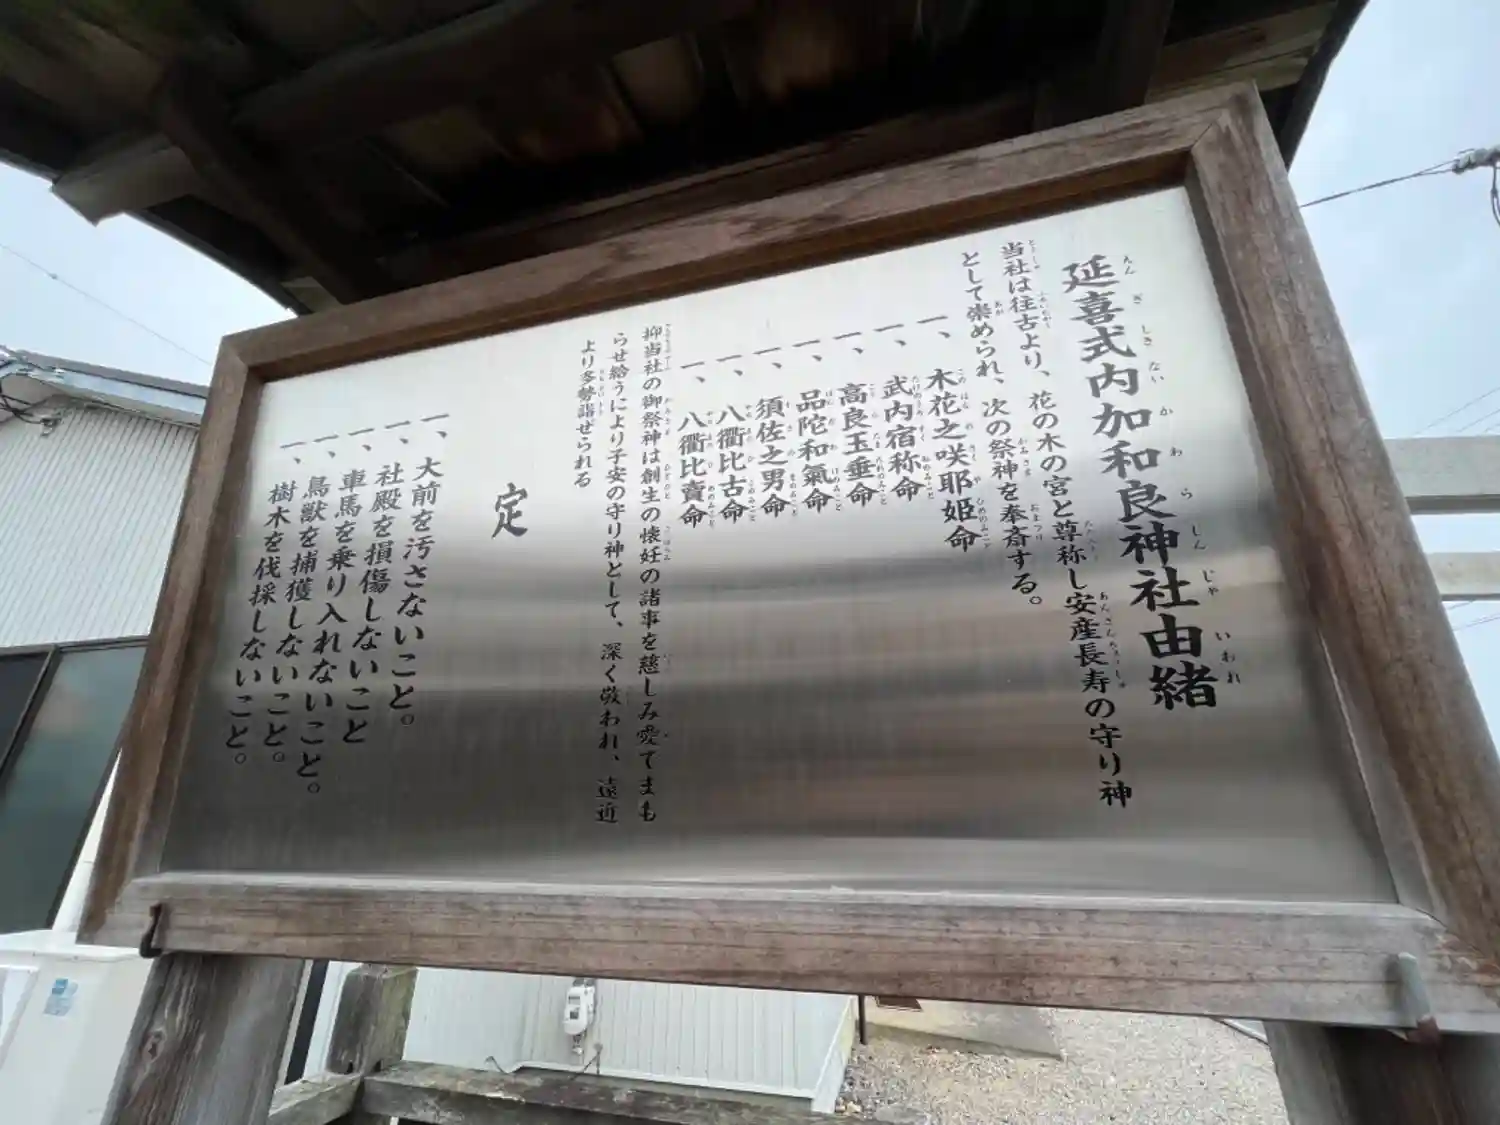 延喜式内加和良神社由緒
当社は往古より、花の木の宮と尊称し安産長寿の守り神
として崇められ、次の祭神を奉斎する。
一、木花之咲耶姫命
一、武内宿称命
一、高良玉垂命
一、品陀和氣命
一、須佐之男命
一、八衢比古命
一、八衢比賣命
抑当社の御祭神は創生の懐妊の諸事を慈しみ愛でまも
らせ給うにより子安の守り神として、深く敬われ、遠近
より多勢詣ぜられる
定
一、大前を汚さないこと。
一、社殿を損傷しないこと
一、車馬を乗り入れないこと。
一、鳥獣を捕獲しないこと。
一、樹木を伐採しないこと。